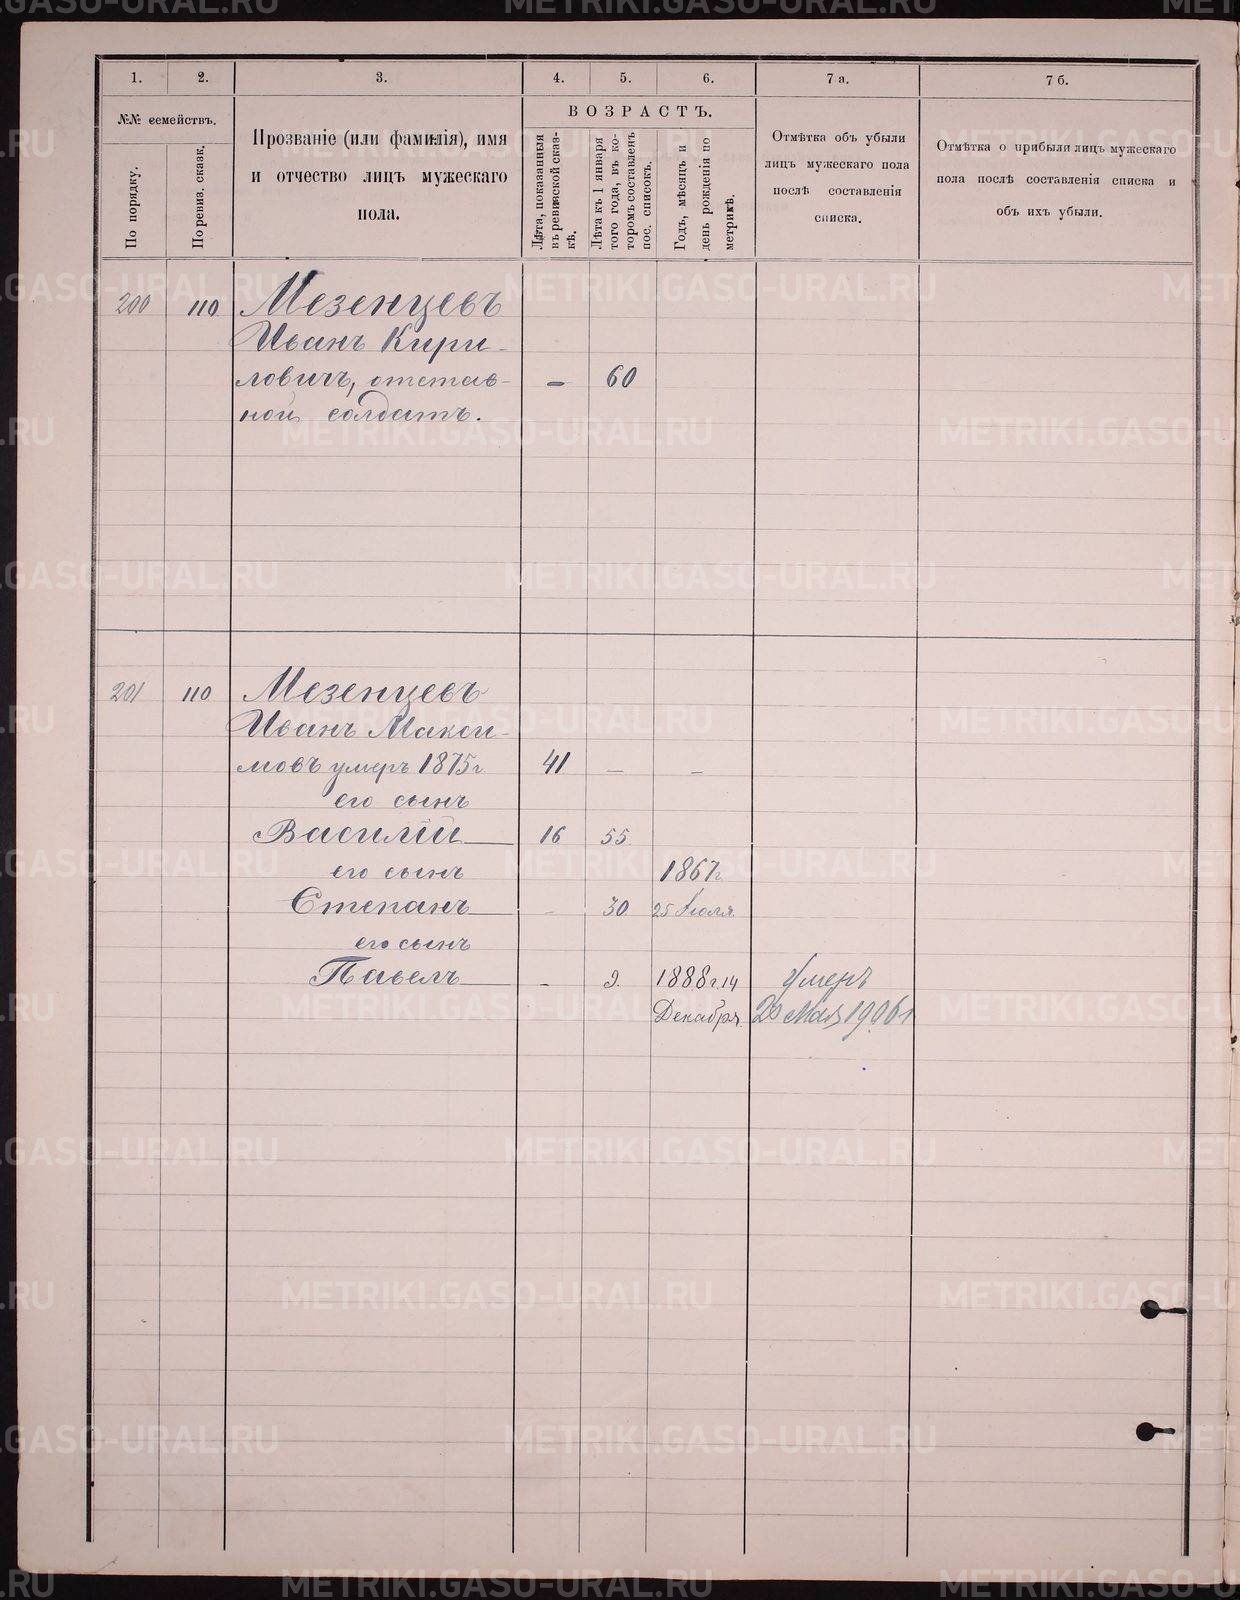 1. 2. 3. 4. 5. 6. 7 а. 7 б.
№№ семействъ.
По порядку.
По ревиз. сказк.
Прозваніе (или фамилія), имя
и отчество лицъ мужескаго
пола.
ВОЗРАСТЪ.
Лѣта, показанныя
въ ревизской сказ-
кѣ.
Лѣта къ 1 января
того года, въ ко-
торомъ составленъ
пос. списокъ.
Годъ, мѣсяцъ и
день рожденія по
метрикѣ.
Отмѣтка объ убыли
лицъ мужескаго пола
послѣ составленія
списка.
Отмѣтка о прибыли лицъ мужескаго
пола послѣ составленія списка и
объ ихъ убыли.
200 110 Мезенцевъ
Иванъ Кири-
ловичъ, отстав- — 60
ной солдатъ.
201 110 Мезенцевъ
Иванъ Макси-
мовъ умеръ 1875 г. 41 — —
его сынъ
Василій 16 55
его сынъ 1867 г.
Степанъ - 30 25 Іюля
его сынъ
Павелъ - 9. 1888 г. 14 Умеръ
Декабря 20 Мая 1906 г
METRIKI.GASO-URAL.RU